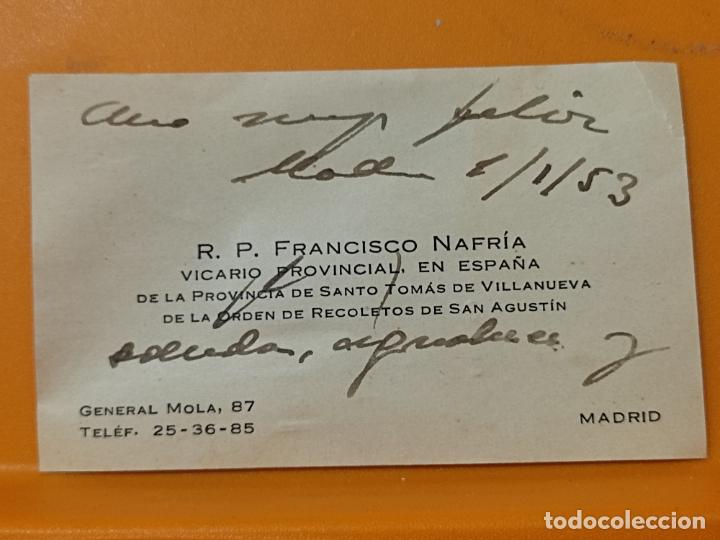 muy
Mad 1/1/53
R. P. FRANCISCO NAFRÍA
VICARIO PROVINCIAL, EN ESPAÑA
DE LA PROVINCIA DE SANTO TOMÁS DE VILLANUEVA
DE LA ORDEN DE RECOLETOS DE SAN AGUSTÍN
saluda,
GENERAL MOLA, 87
TELÉF. 25-36-85
MADRID
todocoleccion